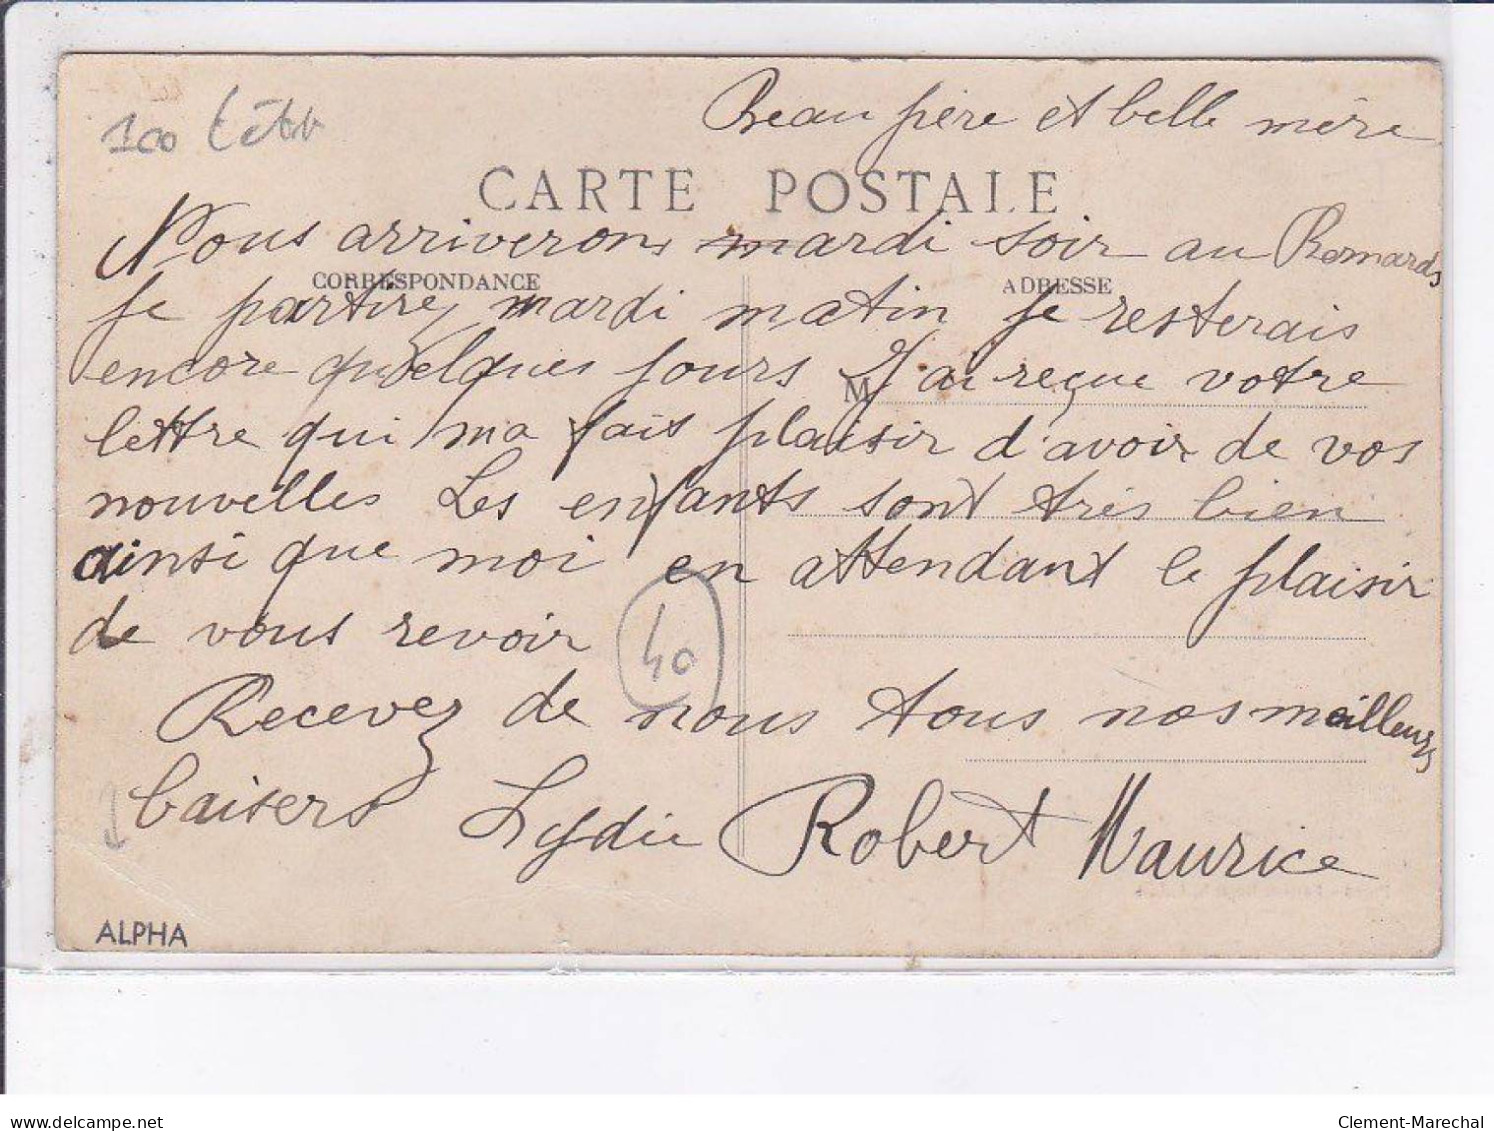 100
Beau père et belle mère
CARTE POSTALE
Nous arriverons mardi soir au Remards
CORRESPONDANCE
ADRESSE
je partirez mardi matin je resterais
encore quelques jours J'ai reçue votre
M
lettre qui ma fais plaisir d'avoir de vos
nouvelles Les enfants sont très bien
ainsi que moi en attendant le plaisir
de vous revoir
40
Recevez de nous tous nos meilleurs
baisers Lydie Robert Maurice
ALPHA
www.delcampe.net
Clement-Marechal